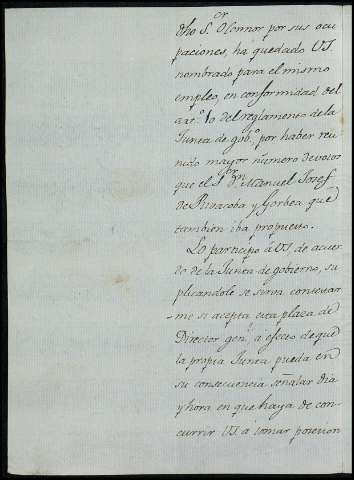 dho S.or OConnor por sus ocu
paciones, ha quedado VS.
nombrado para el mismo
empleo, en conformidad del
art.o 10 del reglamento de la
Junta de gob.o por haber reu
nido mayor número de votos
que el S.or D.n Manuel Josef
de Rivacoba y Gorbea que
tambien iba propuesto.
Lo participo á VS de acuer
do de la Junta de gobierno, su
plicandole se sirva contextar
me si acepta esta plaza de
Director gen.l á efecto de que
la propia Junta pueda en
su consecuencia señalar dia
y hora en que haya de con
currir VS. á tomar posesion